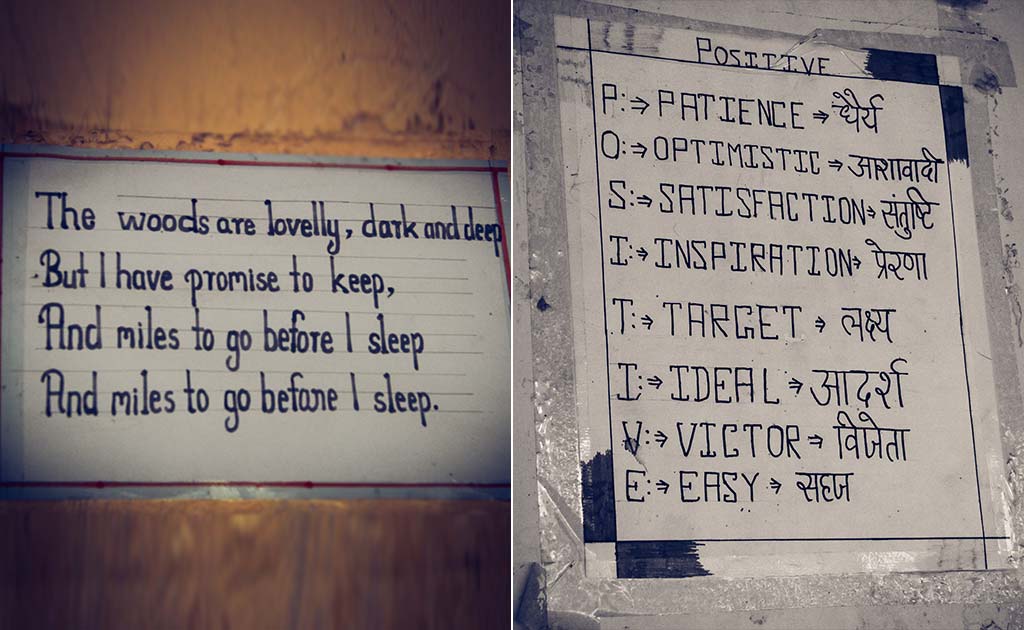 The woods are lovelly, dark and deep
But I have promise to keep,
And miles to go before I sleep
And miles to go before I sleep.
POSITIVE
P:⇒ PATIENCE ⇒ धैर्य
O:⇒ OPTIMISTIC ⇒ आशावादी
S:⇒ SATISFACTION ⇒ संतुष्टि
I:⇒ INSPIRATION ⇒ प्रेरणा
T:⇒ TARGET ⇒ लक्ष्य
I:⇒ IDEAL ⇒ आदर्श
V:⇒ VICTOR ⇒ विजेता
E:⇒ EASY ⇒ सहज